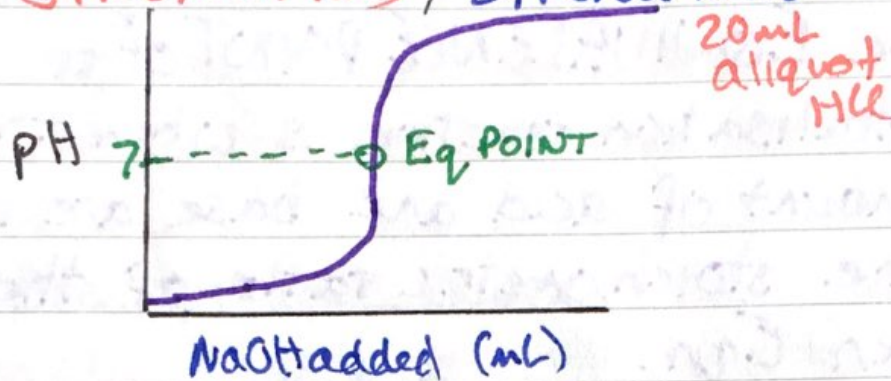 20mL
aliquot
HCl
pH 7
Eq POINT
NaOH added (mL)